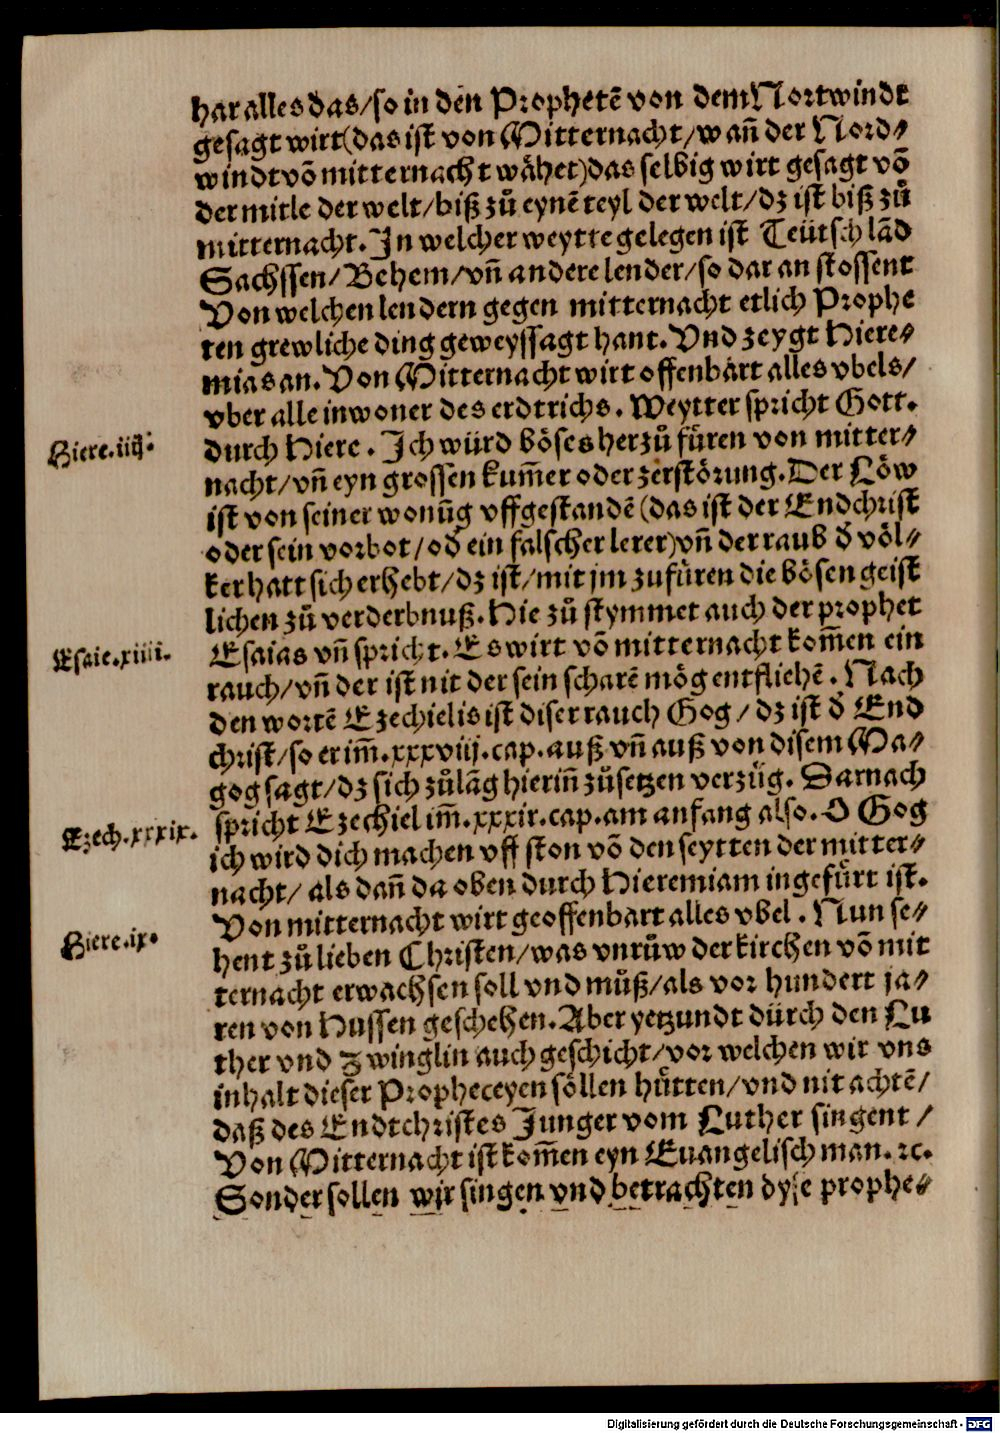 har alles das/so in den Prophetẽ von dem Nortwindt
gesagt wirt(das ist von Mitternacht/wañ der Nord⸗
windt võ mitternacht wähet)das selbig wirt gesagt võ
der mitle der welt/biß zů eynẽ teyl der welt/dz ist biß zů
mitternacht. In welcher weytte gelegen ist Teütsch lãd
Sachssen/Behem/vñ andere lender/so dar an stossent
Von welchen lendern gegen mitternacht etlich Prophe
ten grewliche ding geweyssagt hant. Vnd zeygt Hiere⸗
mias an. Von Mitternacht wirt offenbart alles vbels/
vber alle inwoner des erdtrichs. Weytter spricht Gott.
Hiere.iiij.
durch Hiere. Ich würd böses herzů füren von mitter⸗
nacht/vñ eyn grossen kum̃er oder zerstörung. Der Löw
ist von seiner wonũg vffgestandẽ (das ist der Endchrist
oder sein vorbot/oď ein falscher lerer)vñ der raub ď völ⸗
ker hatt sich erhebt/dz ist/mit jm zufüren die bösen geist
lichen zů verderbnuß. Hie zů stymmet auch der prophet
Esaie.xiiii.
Esaias vñ spricht. Es wirt võ mitternacht kom̃en ein
rauch/vñ der ist nit der sein scharẽ mög entfliehẽ. Nach
den wortẽ Ezechielis ist diser rauch Gog/dz ist ď End
christ/so er im̃.xxxviij.cap.auß vñ auß von disem Ma⸗
gog sagt/dz sich zůlãg hieriñ zůsetzen verzüg. Darnach
Ezech.xxxix.
spricht Ezechiel im̃.xxxix.cap.am anfang also. O Gog
ich wird dich machen vff ston võ den seytten der mitter⸗
nacht/ als dañ da oben durch Hieremiam ingefürt ist.
Hiere.ix.
Von mitternacht wirt geoffenbart alles vbel. Nun se⸗
hent zů lieben Christen/was vnrůw der kirchen võ mit
ternacht erwachsen soll vnd můß/als vor hundert ja⸗
ren von Hussen geschehen. Aber yetzundt dürch den Lu
ther vnd Zwinglin auch geschicht/vor welchen wir vns
inhalt dieser Propheceyen söllen hütten/vnd nit achtẽ/
daß des Endtchristes Junger vom Luther singent/
Von Mitternacht ist kom̃en eyn Euangelisch man.ꝛc.
Sonder sollen wir singen vnd betrachten dyse prophe⸗
Digitalisierung gefördert durch die Deutsche Forschungsgemeinschaft - DFG